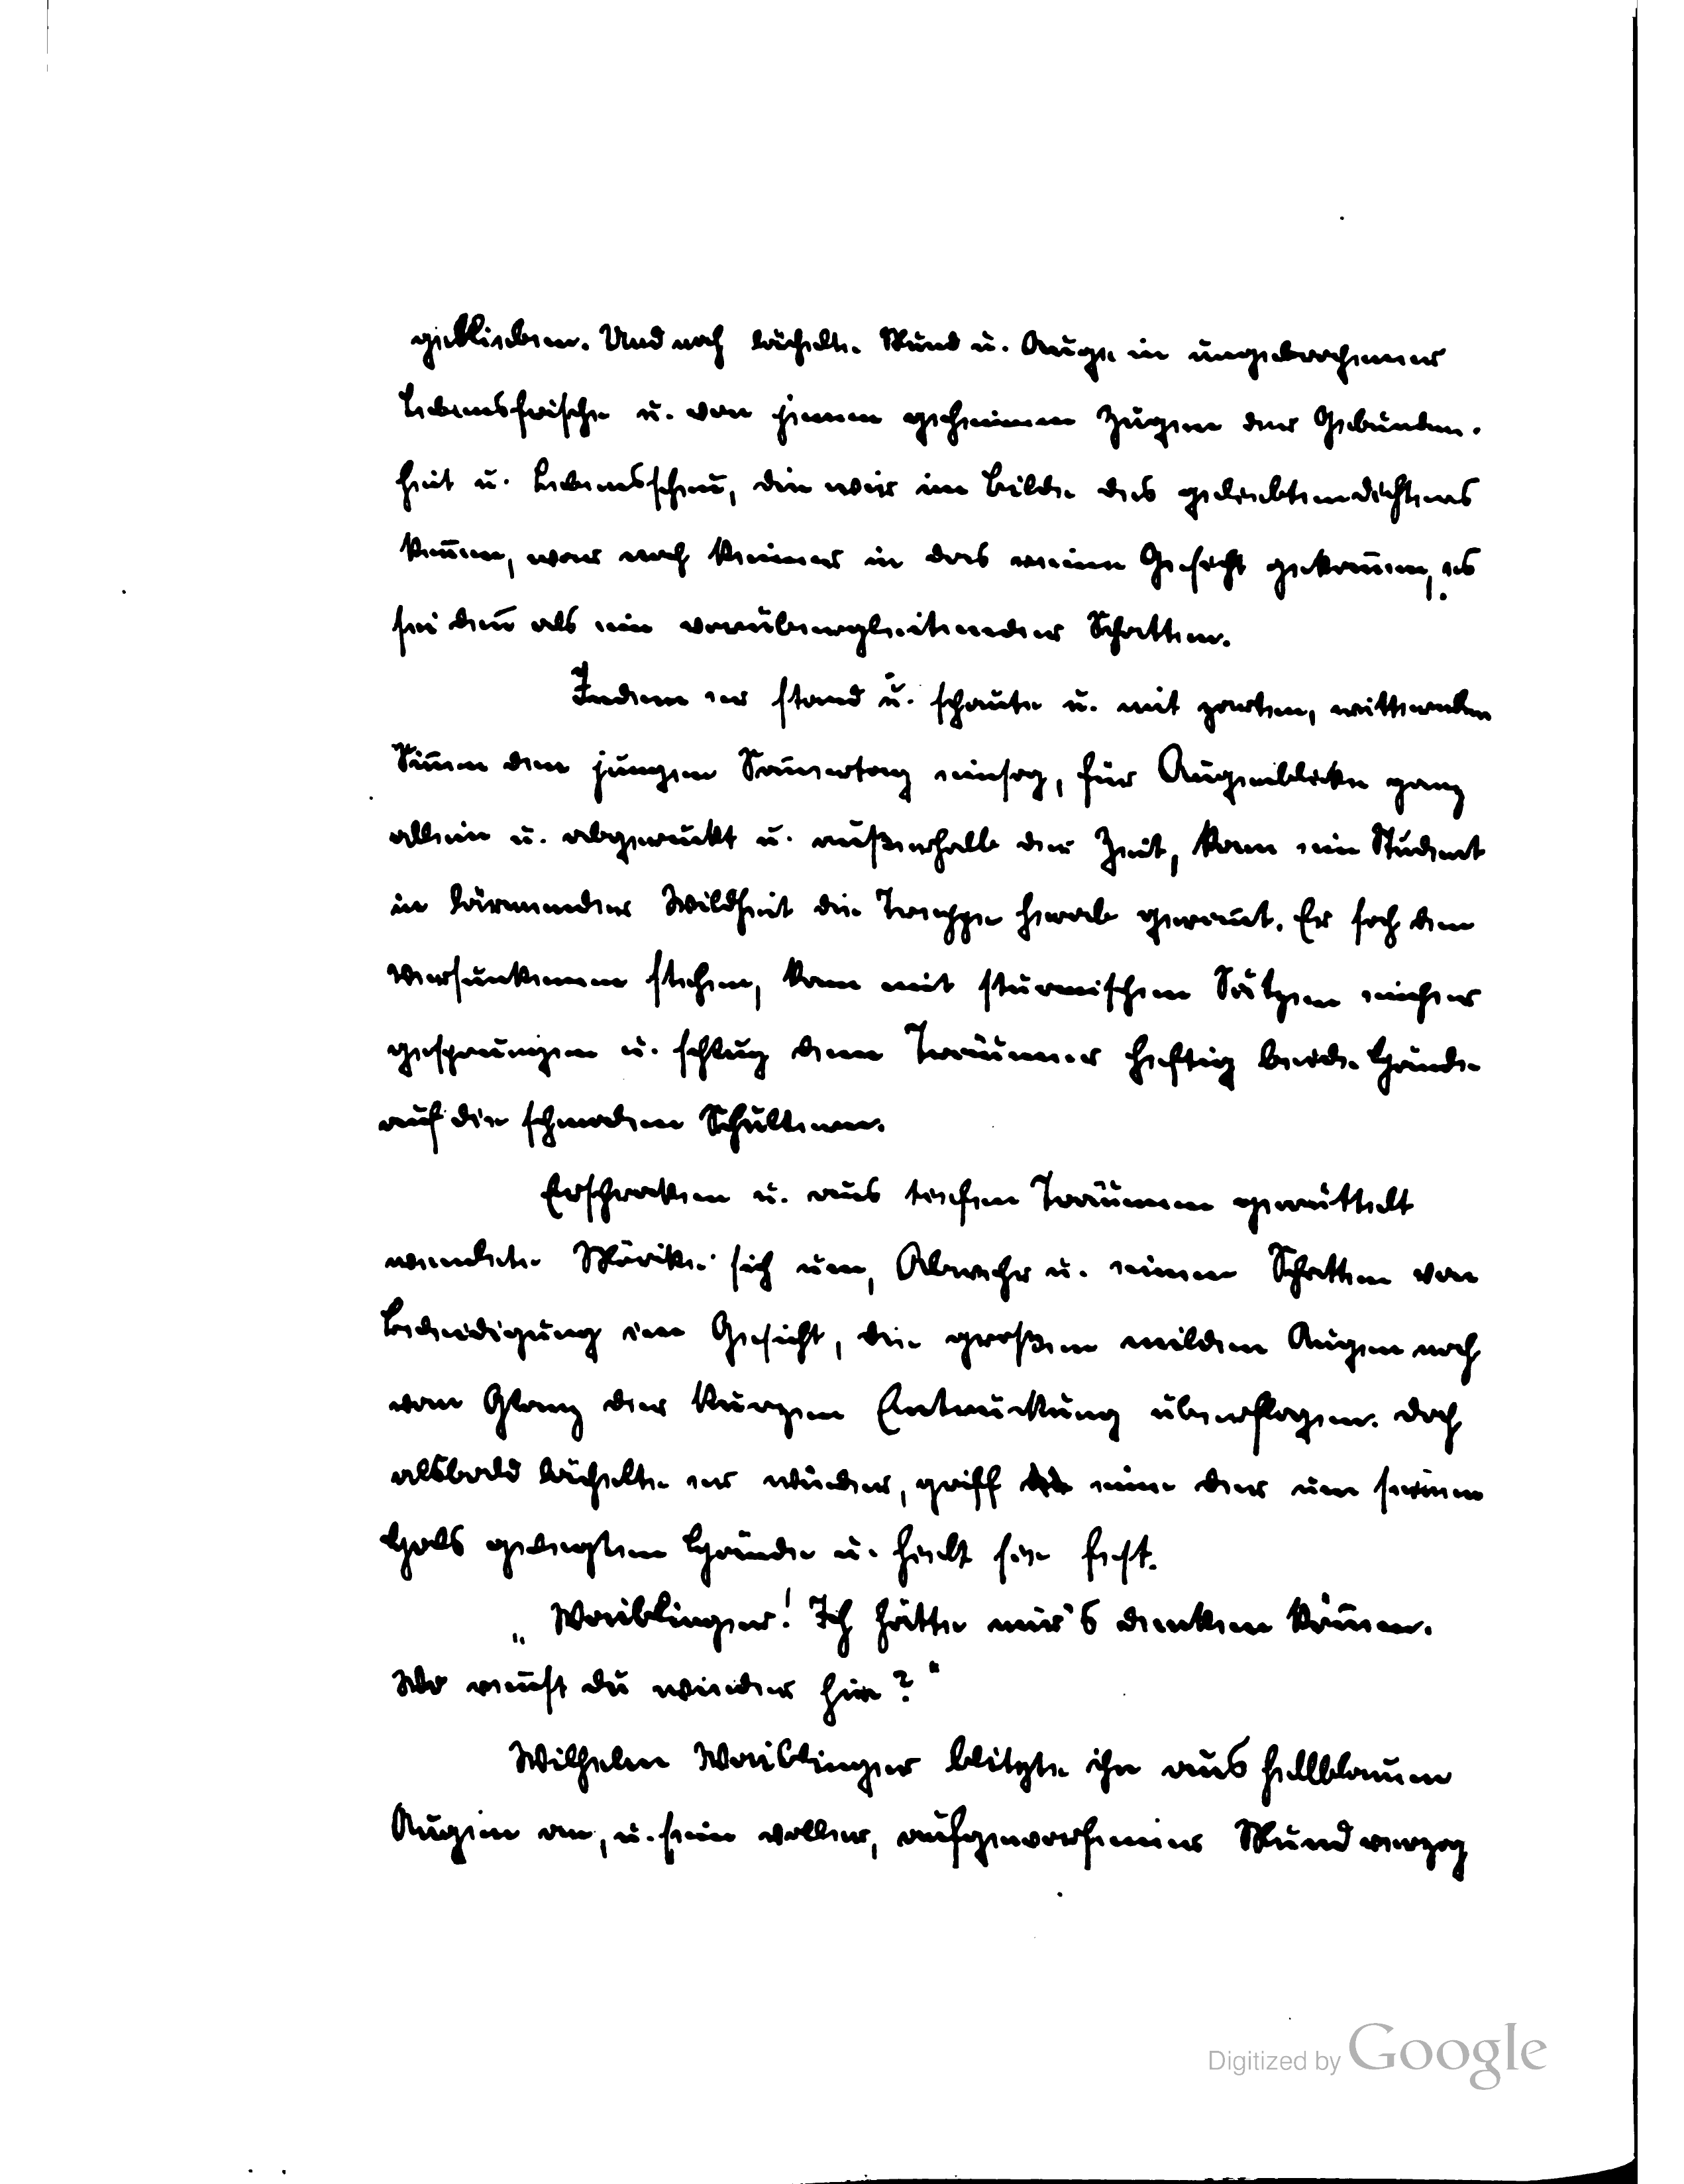 geblieben. Und noch lächelte Mund u. Auge in ungebrochener
Lebensfrische u. von jenen geheimen Zügen der Gebunden-
heit u. Lebensscheu, die wir im Bilde des geliebten Dichters
kennen, war noch keiner in das reine Gesicht gekom̄en, es
sei den̄ als ein vorübergleitender Schatten.
Indem er stand u. schaute u. mit zarten, witternden
Sin̄en den jungen Som̄ertag einsog, für Augenblicke ganz
allein u. abgerückt u. außerhalb der Zeit, kam ein Student
in lärmender Wildheit die Treppe herab geran̄t. Er sah den
Versunkenen stehen, kam mit stürmischen Sätzen näher
gesprungen u. schlug dem Träumer heftig beide Hände
auf die schmalen Schultern.
Erschrocken u. aus tiefen Träumen gerüttelt
wendete Mörike sich um, Abwehr u. einen Schatten von
Beleidigung im Gesicht, die großen milden Augen noch
vom Glanz der kurzen Entrückung überflogen. Doch
alsbald lächelte er wieder, griff eine der um seinen
Hals gelegten Hände u. hielt sie fest.
„Waiblinger! Ich hätte mir's denken kön̄en.
Wo ren̄st du wieder hin?"
Wilhelm Waiblinger blitzte ihn aus hellblauen
Augen an, u. sein voller, aufgeworfener Mund verzog
Digitized by Google